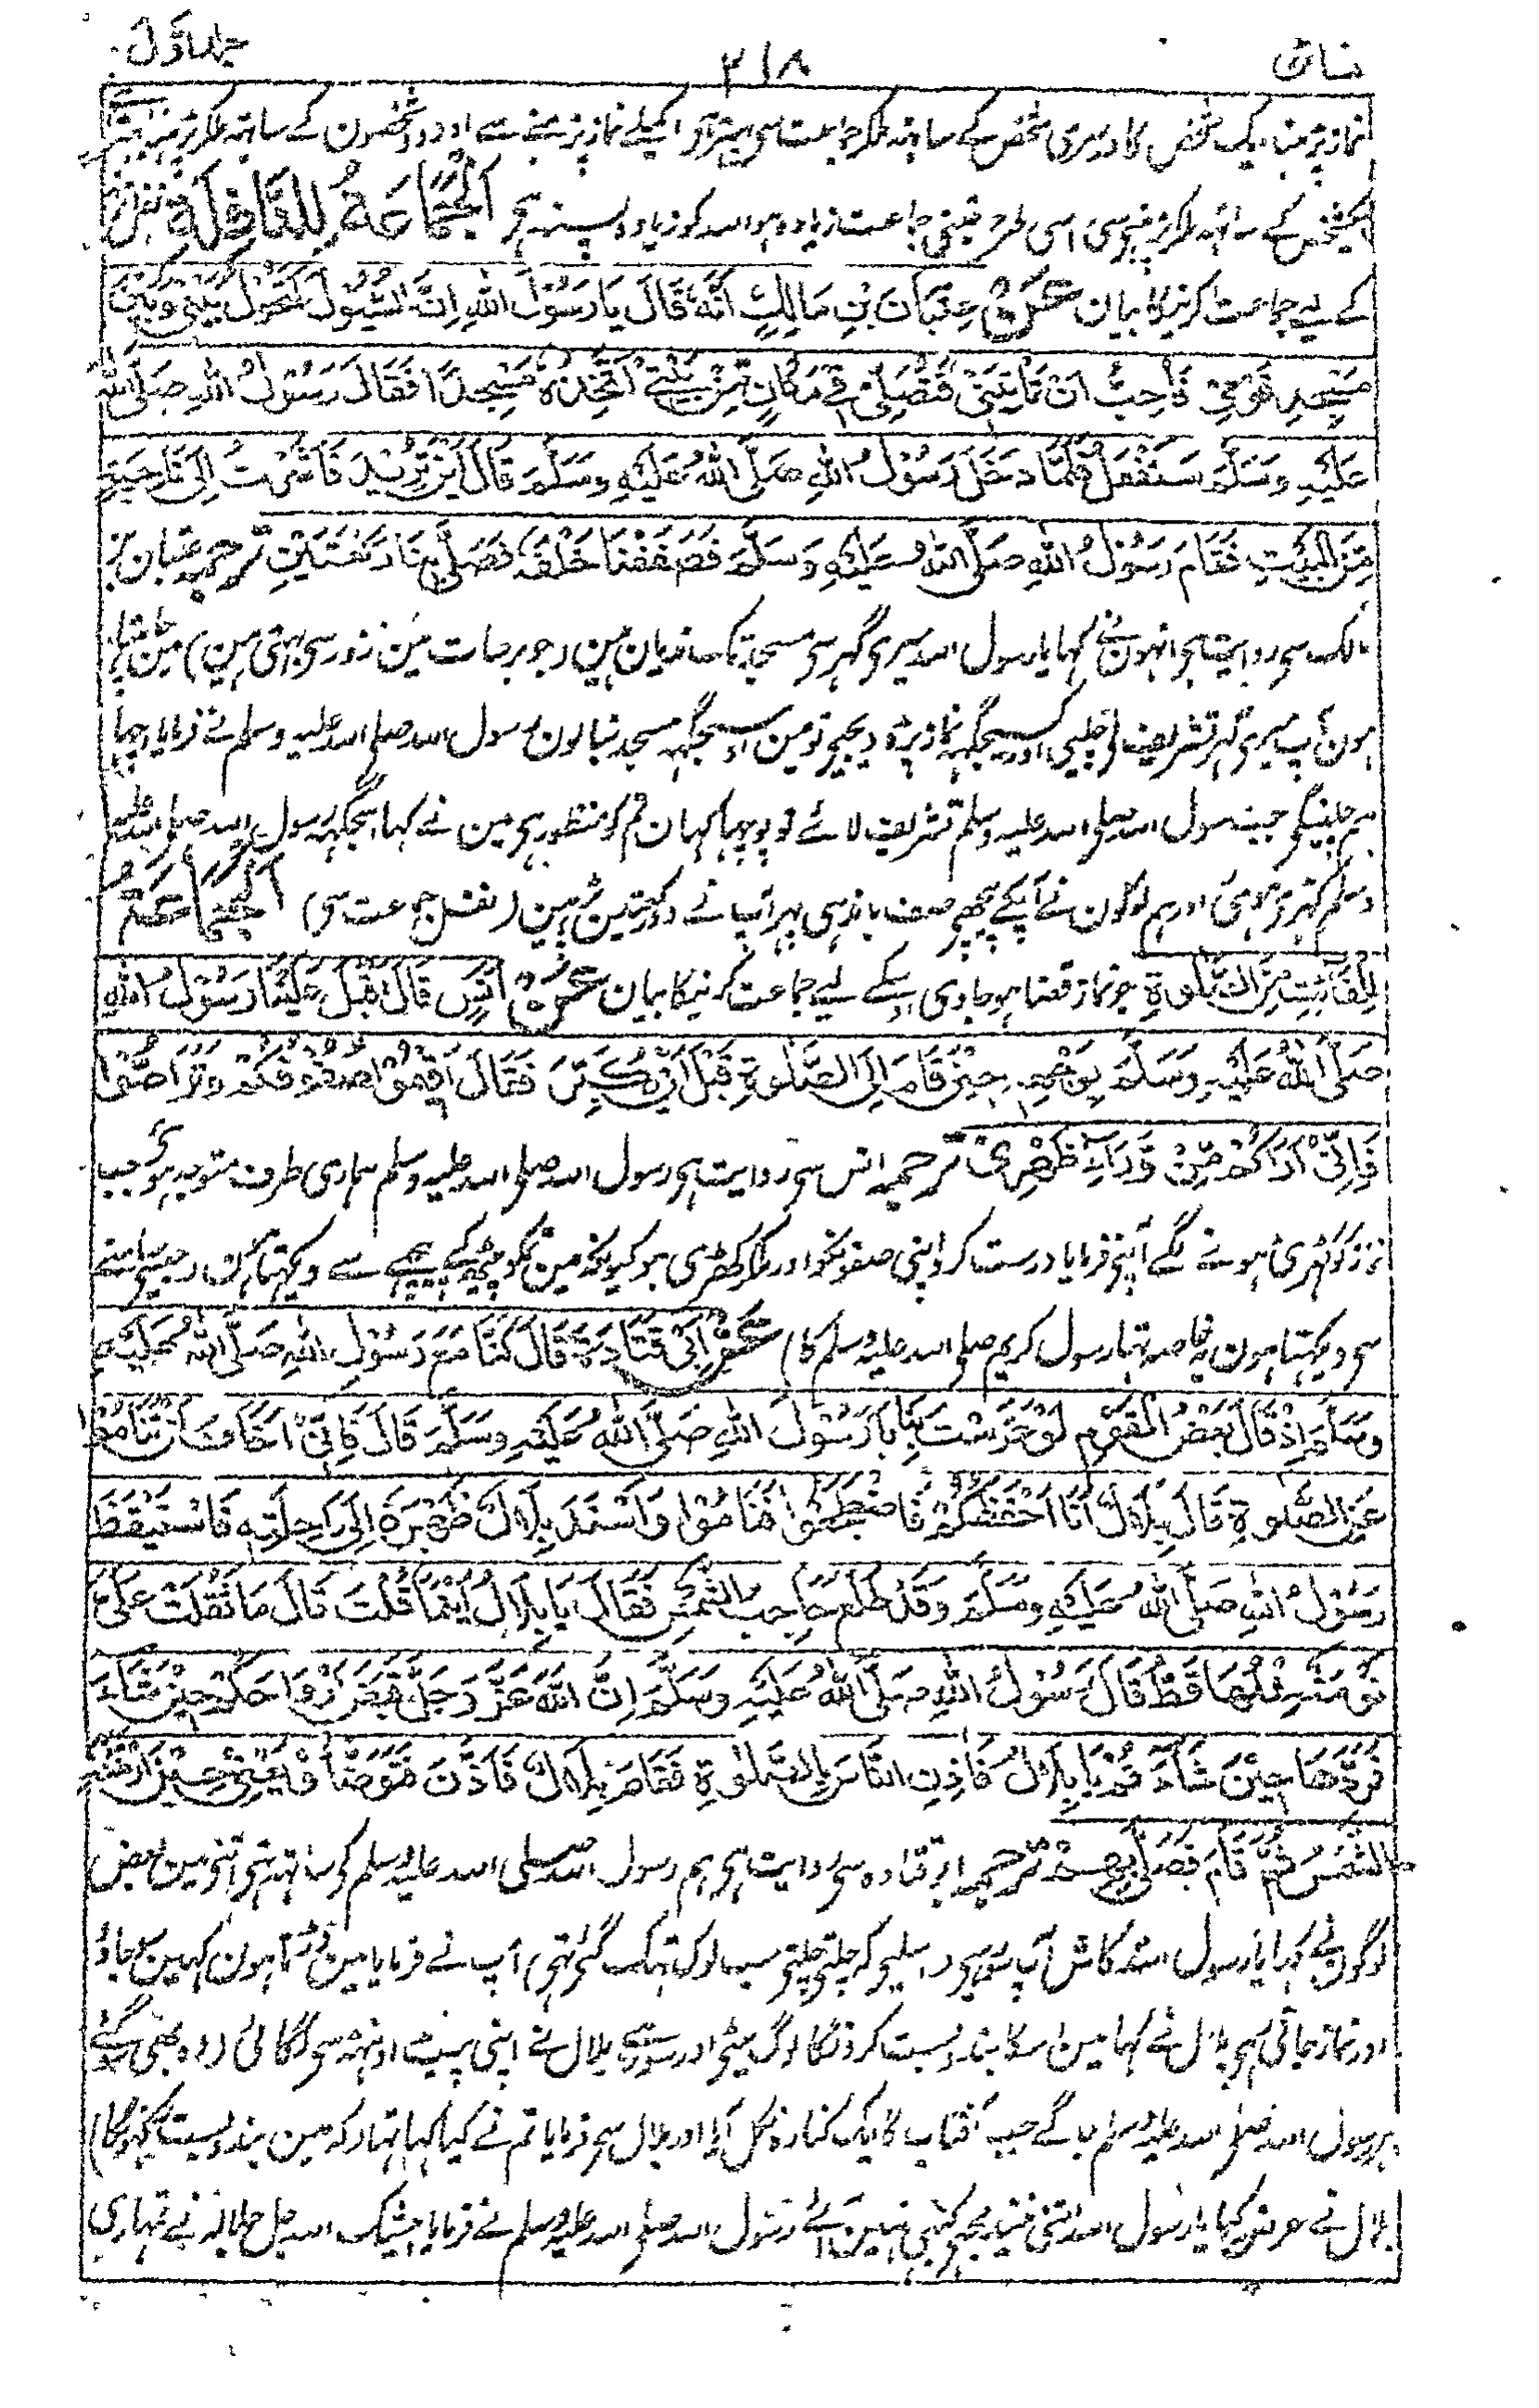 نسائی ۲۱۸ جلد اول
نماز پڑھنا ایک شخص کا دوسری شخص کے ساتھہ ملکر جماعت سی بہتر ہی اکیلے نماز پڑہنے سے اور دو شخصون کے ساتھہ ملکر پڑہنا بہتر
ایکشخص کے ساتھہ ملکر پڑہنی سی اسی طرح جتنی جماعت زیادہ ہو اللہ کو زیادہ پسند ہی اَلْجَمَاعَةُ لِلنَّافِلَةِ نفل نماز
کے لیے جماعت کرنیکا بیان عَنْ عِتْبَانَ بْنِ مَالِكٍ اَنَّهٗ قَالَ يَا رَسُوْلَ اللهِ اِنَّ السُّيُوْلَ لَتَحُوْلُ بَيْنِيْ وَبَيْنَ
مَسْجِدِ قَوْمِيْ فَاُحِبُّ اَنْ تَاْتِيَنِيْ فَتُصَلِّيَ فِيْ مَكَانٍ مِّنْ بَيْتِيْ اَتَّخِذُهٗ مَسْجِدًا فَقَالَ رَسُوْلُ اللهِ صَلَّى اللهُ
عَلَيْهِ وَسَلَّمَ سَنَفْعَلُ فَلَمَّا دَخَلَ رَسُوْلُ اللهِ صَلَّى اللهُ عَلَيْهِ وَسَلَّمَ قَالَ اَيْنَ تُرِيْدُ فَاَشَرْتُ اِلٰى نَاحِيَةٍ
مِّنَ الْبَيْتِ فَقَامَ رَسُوْلُ اللهِ صَلَّى اللهُ عَلَيْهِ وَسَلَّمَ فَصَفَفْنَا خَلْفَهٗ فَصَلّٰى بِنَا رَكْعَتَيْنِ ترجمہ عتبان بن
مالک سی روایت ہی انہون نے کہا یا رسول اللہ میری گہر سی مسجد تک ندیان ہین (جو برسات مین زور سی بہتی ہین) مین چاہتا
ہون آپ میری گہر تشریف لی چلیی اور کسیجگہہ نماز پڑہ دیجیی تو مین اوسیجگہہ مسجد بنا لون رسول اللہ صلی اللہ علیہ وسلم نے فرمایا اچہا
ہم چلینگی جب رسول اللہ صلی اللہ علیہ وسلم تشریف لائے تو پوچہا کہان تم کو منظور ہی مین نے کہا اسجگہہ رسول اللہ صلی اللہ علیہ
وسلم کہڑی ہوئی اور ہم لوگون نے آپکے پیچہی صف باندہی پہر آپ نے دو رکعتین پڑہین (نفل جماعت سی) اَلْجَمَاعَةُ
لِلْفَائِتِ مِنَ الصَّلٰوةِ جو نماز قضا ہو جاوی اوسکے لیے جماعت کرنیکا بیان عَنْ اَنَسٍ قَالَ اَقْبَلَ عَلَيْنَا رَسُوْلُ اللهِ
صَلَّى اللهُ عَلَيْهِ وَسَلَّمَ بِوَجْهِهٖ حِيْنَ قَامَ اِلَى الصَّلٰوةِ قَبْلَ اَنْ يُّكَبِّرَ فَقَالَ اَقِيْمُوْا صُفُوْفَكُمْ وَتَرَاصُّوْا
فَاِنِّيْ اَرَاكُمْ مِنْ وَّرَاءِ ظَهْرِيْ ترجمہ انس سی روایت ہی رسول اللہ صلی اللہ علیہ وسلم ہماری طرف متوجہ ہوئی جب
نماز کو کہڑی ہونے لگے آپنے فرمایا درست کرو اپنی صفونکو اور ملکر کہڑی ہو کیونکہ مین تمکو پیٹھ کے پیچہے سے دیکہتا ہون (جیسی سامنے
سی دیکہتا ہون یہ خاصہ تہا رسول کریم صلی اللہ علیہ وسلم کا) عَنْ اَبِيْ قَتَادَةَ قَالَ كُنَّا مَعَ رَسُوْلِ اللهِ صَلَّى اللهُ عَلَيْهِ
وَسَلَّمَ اِذْ قَالَ بَعْضُ الْقَوْمِ لَوْ عَرَّسْتَ بِنَا يَا رَسُوْلَ اللهِ صَلَّى اللهُ عَلَيْهِ وَسَلَّمَ قَالَ فَاِنِّيْ اَخَافُ اَنْ تَنَامُوْا
عَنِ الصَّلٰوةِ قَالَ بِلَالٌ اَنَا اَحْفَظُكُمْ فَاضْطَجَعُوْا فَنَامُوْا وَاَسْنَدَ بِلَالٌ ظَهْرَهٗ اِلٰى رَاحِلَتِهٖ فَاسْتَيْقَظَ
رَسُوْلُ اللهِ صَلَّى اللهُ عَلَيْهِ وَسَلَّمَ وَقَدْ طَلَعَ حَاجِبُ الشَّمْسِ فَقَالَ يَا بِلَالُ اَيْنَمَا قُلْتَ قَالَ مَا نُقِلَتْ عَلَيَّ
نَوْمَةٌ مِثْلُهَا قَطُّ قَالَ رَسُوْلُ اللهِ صَلَّى اللهُ عَلَيْهِ وَسَلَّمَ اِنَّ اللهَ عَزَّ وَجَلَّ قَبَضَ اَرْوَاحَكُمْ حِيْنَ شَاءَ
فَرَدَّهَا حِيْنَ شَاءَ قُمْ يَا بِلَالُ فَاٰذِنِ النَّاسَ بِالصَّلٰوةِ فَقَامَ بِلَالٌ فَاَذَّنَ فَتَوَضَّاُوْا يَعْنِيْ حِيْنَ ارْتَفَعَتِ
الشَّمْسُ ثُمَّ قَامَ فَصَلّٰى بِهِمْ ترجمہ ابو قتادہ سی روایت ہی ہم رسول اللہ صلی اللہ علیہ وسلم کی ساتھہ تہی اتنی مین بعض
لوگون نے کہا یا رسول اللہ کاش آپ سو رہی (اسلیی کہ چلتی چلتی سب لوگ تہک گئی تہی) آپ نے فرمایا مین ڈرتا ہون کہین سو جاؤ
اور نماز جاتی رہی بلال نے کہا مین اسکا بندوبست کرونگا لوگ لیٹی اور سو رہے بلال نے اپنی پیٹ اونٹہ سی لگا لی (وہ بھی سو گئے
پہر رسول اللہ صلی اللہ علیہ وسلم جاگے جب آفتاب کا ایک کنارہ نکل آیا اور بلال سی فرمایا تم نے کیا کہا تہا (کہ مین بندوبست کرونگا)
بلال نے عرض کیا یا رسول اللہ اتنی نیند مجہی کبہی نہین آئے رسول اللہ صلی اللہ علیہ وسلم نے فرمایا بیشک اللہ جل جلالہ نے تمہاری